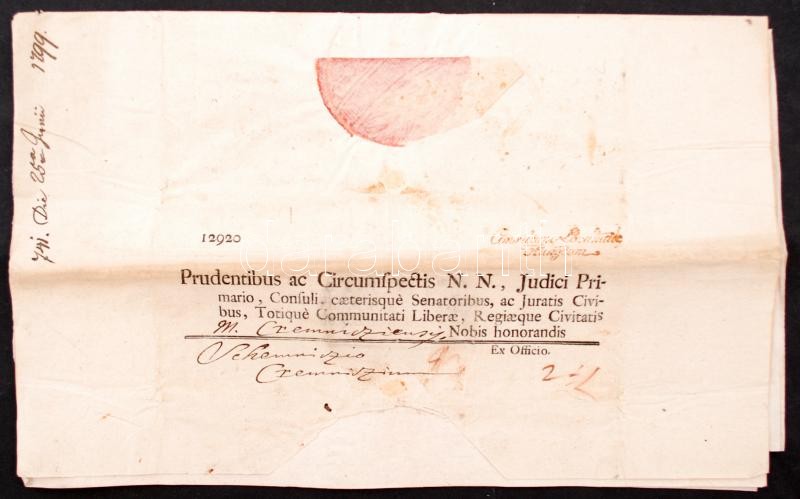 741. Die 25a Junii 1799.
12920
Prudentibus ac Circumſpectis N. N., Judici Pri-
mario, Conſuli, cæterisquè Senatoribus, ac Juratis Civi-
bus, Totiquè Communitati Liberæ, Regiæque Civitatis
M. Cremnicziensis, Nobis honorandis
Ex Officio.
Schemniczio
Cremniczium